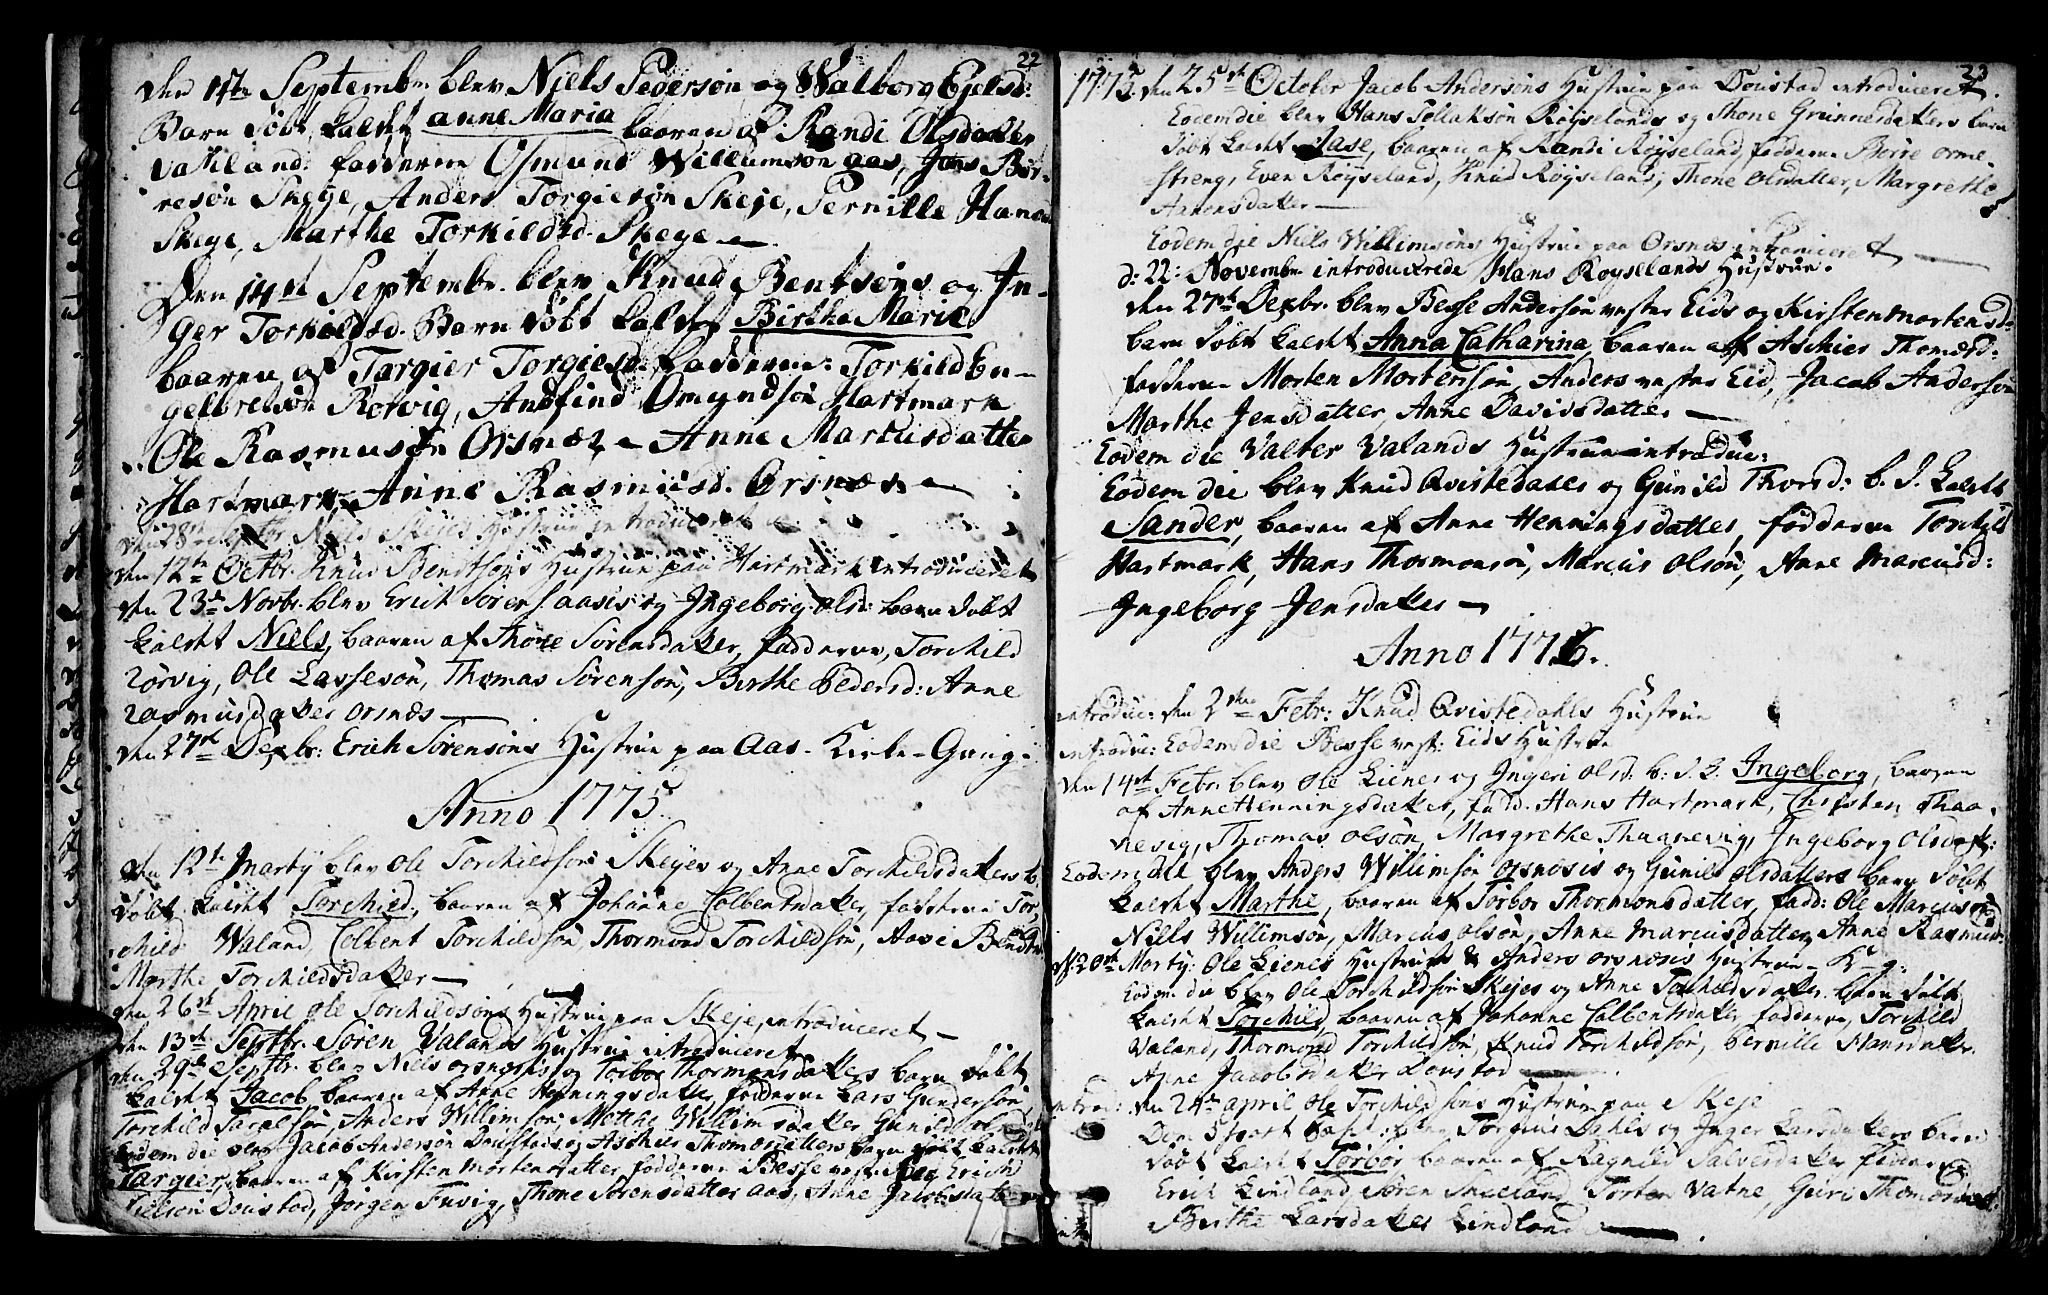 22
den 14te Septembr. blev Niels Pedersøn og Walborg Ejelsd:
Barn døbt kaldet anne Maria baaren af Randi Olsdatter
Valand: fadderne Osmund Willumsøn aas, Jens Bør-
resøn Skeje, Anders Torgiersøn Skeje, Pernille Hans
Skeje, Marthe Torkildsd. Skeje
Den 14de Septembr. blev Knud Bentsøns og In-
ger Torkildsd. Barn døbt kaldet Birthe Marie
baaren af Targier Torgiesd. fadderne: Torkild En-
gelbretsøn Rørvig, Andfind Omundsøn Hartmark
Ole Rasmusøn Orsnæs - Anne Markusdatter
Hartmark - Anne Rasmusd. Orsnæs
den 28de Septbr Niels Skejes Hustrue introduceret
den 12te Octbr. Knud Bendtsøns Hustrue paa Hartmark introduceret
den 23de Novbr. blev Erick Sørens aases og Ingeborg Olsd: barn døbt
kaldet Niels, baaren af Thore Sørensdatter, fadderne, Torchild
Rørvig, Ole Lassesøn, Thomas Sørensøn, Birthe Pedersd: Anne
Rasmusdatter Orsnæs
den 27de Decbr: Erich Sørensøns Hustrue paa Aas - Kirke-Gang.
Anno 1775
den 12te Marty blev Ole Torchildsøns Skejes og Anne Torchildsdatters b.
døbt kaldet Torchild, baaren af Johanne Colbentsdatter, fadderne Tor-
child Waland, Colbent Torchildsøn, Thormond Torchildsøn, Aase Bendts
Marthe Torchildsdatter
den 26de April Ole Torchildsøns Hustrue paa Skeje, introduceret
den 13de Septbr. Søren Valands Hustrue introduceret
den 29de Septbr. blev Niels orsnæsis og Torbor Thormonsdatters barn døbt
kaldet Jacob baaren af Anne Henningsdatter, fadderne Lars Gundersøn
Torchild Tarælsøn, Anders Willimsøn, Mette Willimsdatter, Gunild
Eodem die blev Jacob Andersøn Doustads og Aschier Thomasdatters barn døbt kaldet
Targier, baaren af Kirsten Mortensdatter, fadderne Besse vester Eeg Erich
Nielsøn Doustad, Jørgen Fuvig, Thone Sørensdatter Aas, Anne Jacobsdatter
23
1775 den 25de October Jacob Andersøns Hustrue paa Doustad introduceret.
Eodem die blev Hans Tollaksøn Røyselands og Thone Grunnersdatters barn
døbt kaldet Aase, baaren af Randi Røyseland, fadderne Børre orme-
streng, Even Røyseland, Knud Røyseland, Thone Olsdatter, Margrethe
Aanonsdatter
Eodem die Niels Willimsøns Hustrue paa Orsnæs introduceret
d: 22: Novembr introducerede Hans Røyselands Hustrue.
den 27de Decbr. blev Besse Andersøn vester Eids og Kirsten Mortensd:
barn døbt kaldet Anna Catharina, baaren af Aschier Thomæsd:
fadderne Morten Mortensøn, Anders vester Eid, Jacob Andersøn
Marthe Jensdatter, Anne Davidsdatter
Eodem die Valter Valands Hustrue introduc:
Eodem die blev Knud Qvistedales og Gunild Thorsd: b. d. kaldet
Sander, baaren af Anne Henningsdatter, fadderne Torchild
Hartmark, Hans Thormonsøn, Marcus Olsøn, Anne Marcusd:
Ingeborg Jensdatter
Anno 1776.
introduc: den 2den Febr: Knud Qvistedahls Hustrue
introduc: Eodem die Besse vest: Eids Hustrue
den 14de Febr. blev Ole Lienes og Ingeri Olsd. b. d. k. Ingeborg, baaren
af Anne Henningsdatter, fadd. Hans Hartmark, Christen Thaa-
nevig, Thomas Olsøn, Margrethe Thaanevig, Ingeborg Olsdatt:
Eodem die blev Anders Willimsøn orsnæsis og Gunild Olsdatters barn døbt
kaldet Marthe, baaren af Torbor Thormonsdatter, fadd: Ole Marcusøn
Niels Willimsøn, Marcus Olsøn, Anne Marcusdatter Anne Rasmusd:
d. 20de Marty: Ole Lienes Hustrue & Anders orsnæsis Hustrue - K-g:
Eodem die blev Ole Torchildsøn Skejes og Anne Torchildsdatter barn døbt
kaldet Torchild, baaren af Johanne Colbentsdatter fadderne, Torchild
Valand, Thormond Torchildsøn, Knud Torchildsøn, Pernille Hansdatter
Anne Jacobsdatter Doustad
introd: den 24de april Ole Torchildsøns Hustrue paa Skeje
Dom: 5 post blev Torgius Dahls og Inger Larsdatters barn
døbt kaldet Torbor, baaren af Ragnild Salvesdatter fadderne
Erich Lindland, Søren Skieland, Torten Vatne, Guri Thomasdatt:
Birthe Larsdatter Lindland